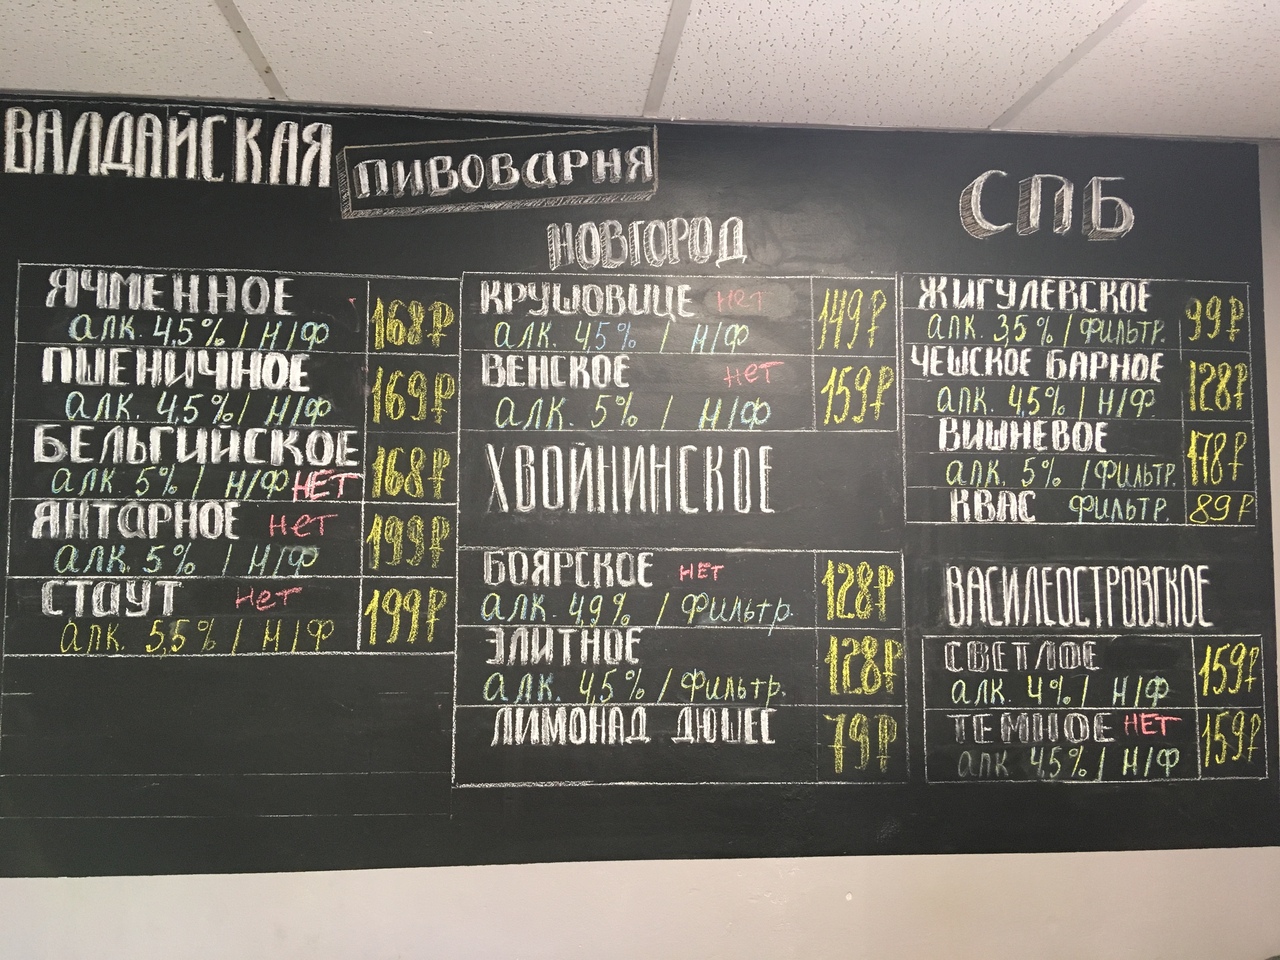 ВАЛДАЙСКАЯ ПИВОВАРНЯ
ЯЧМЕННОЕ 168₽
алк. 4,5% / Н/Ф
ПШЕНИЧНОЕ 169₽
алк. 4,5% / Н/Ф
БЕЛЬГИЙСКОЕ 168₽
алк. 5% / Н/Ф НЕТ
ЯНТАРНОЕ НЕТ 199₽
алк. 5% / Н/Ф
СТАУТ НЕТ 199₽
алк. 5,5% / Н/Ф
НОВГОРОД
КРУШОВИЦЕ НЕТ 149₽
алк. 45% / Н/Ф
ВЕНСКОЕ НЕТ 159₽
алк. 5% / Н/Ф
ХВОЙНИНСКОЕ
БОЯРСКОЕ НЕТ 128₽
алк. 4,9% / Фильтр.
ЭЛИТНОЕ 128₽
алк. 4,5% / Фильтр.
ЛИМОНАД ДЮШЕС 79₽
СПБ
ЖИГУЛЕВСКОЕ 99₽
алк. 3,5% / Фильтр.
ЧЕШСКОЕ БАРНОЕ 128₽
алк. 4,5% / Н/Ф
ВИШНЕВОЕ 178₽
алк. 5% / Фильтр.
КВАС Фильтр. 89₽
ВАСИЛЕОСТРОВСКОЕ
СВЕТЛОЕ 159₽
алк. 4% / Н/Ф
ТЕМНОЕ НЕТ 159₽
алк 45% / Н/Ф